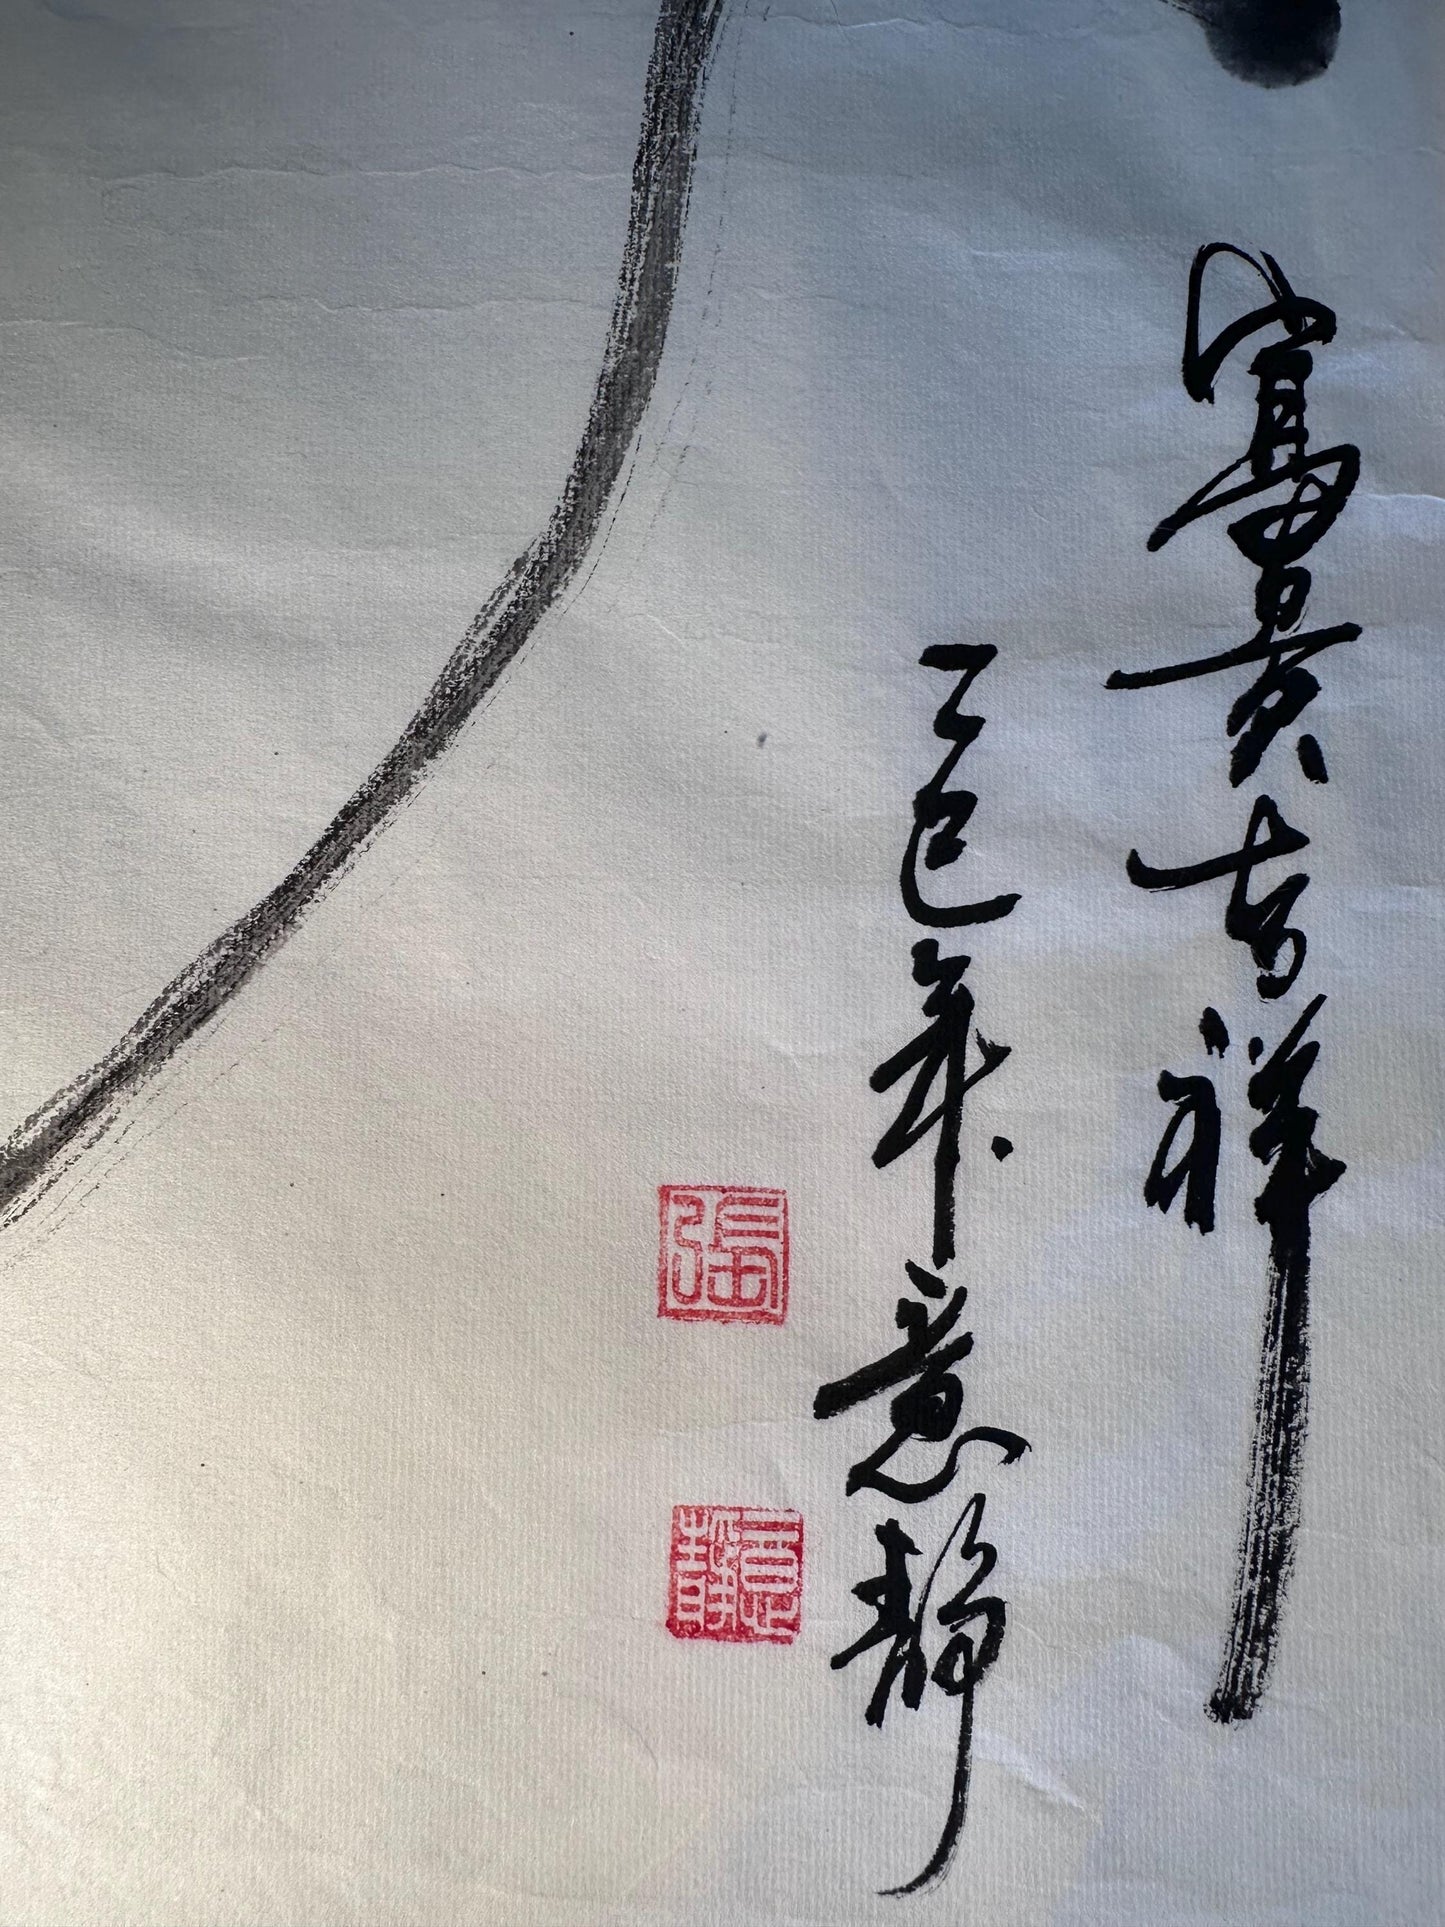 富貴吉祥
乙巳年意靜
張
意靜